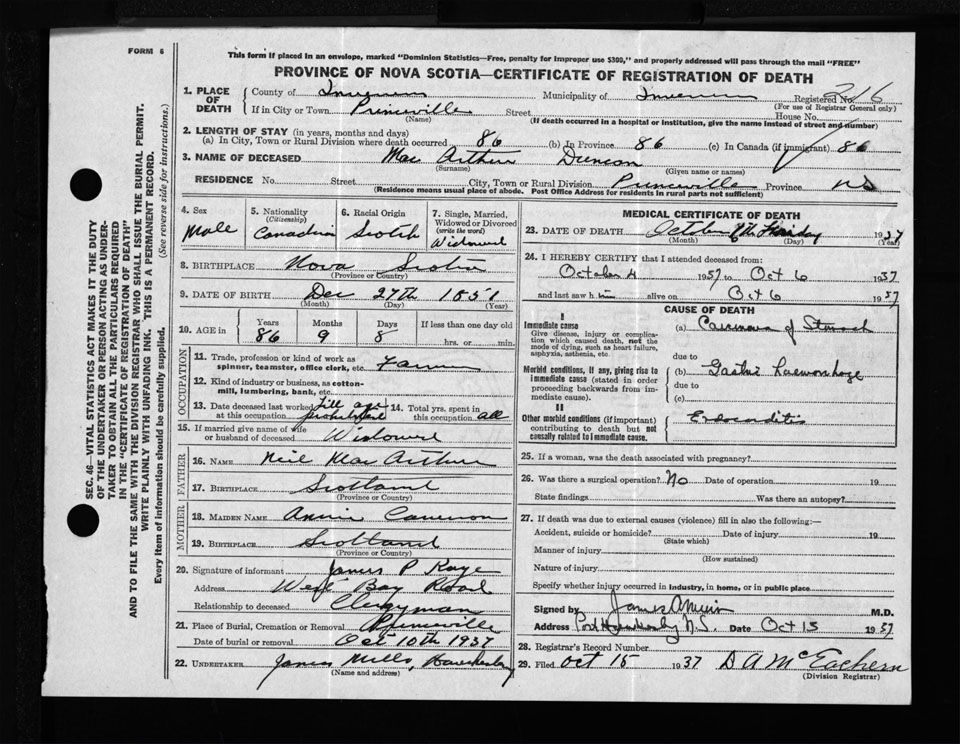 FORM 6
This form if placed in an envelope, marked "Dominion Statistics—Free, penalty for improper use $300," and properly addressed will pass through the mail "FREE"
PROVINCE OF NOVA SCOTIA—CERTIFICATE OF REGISTRATION OF DEATH
SEC. 46—VITAL STATISTICS ACT MAKES IT THE DUTY
OF THE UNDERTAKER OR PERSON ACTING AS UNDER-
TAKER TO OBTAIN ALL THE PARTICULARS REQUIRED
IN THE "CERTIFICATE OF REGISTRATION OF DEATH"
AND TO FILE THE SAME WITH THE DIVISION REGISTRAR WHO SHALL ISSUE THE BURIAL PERMIT.
WRITE PLAINLY WITH UNFADING INK. THIS IS A PERMANENT RECORD.
Every item of information should be carefully supplied.
(See reverse side for instructions.)
1. PLACE OF DEATH County of Inverness Municipality of Inverness Registered No. 216
(For use of Registrar General only)
If in City or Town Princeville Street House No.
(Name) (If death occurred in a hospital or institution, give the name instead of street and number)
2. LENGTH OF STAY (in years, months and days)
(a) In City, Town or Rural Division where death occurred 86 (b) In Province 86 (c) In Canada (if immigrant) 86
3. NAME OF DECEASED Mac Arthur Duncan
(Surname) (Given name or names)
RESIDENCE No. Street City, Town or Rural Division Princeville Province NS
(Residence means usual place of abode. Post Office Address for residents in rural parts not sufficient)
4. Sex Male
5. Nationality (Citizenship) Canadian
6. Racial Origin Scotch
7. Single, Married, Widowed or Divorced (write the word) Widowed
8. BIRTHPLACE Nova Scotia
(Province or Country)
9. DATE OF BIRTH Dec 27th 1851
(Month) (Day) (Year)
10. AGE in Years 86 Months 9 Days 8 If less than one day old hrs. or min.
OCCUPATION
11. Trade, profession or kind of work as spinner, teamster, office clerk, etc. Farmer
12. Kind of industry or business, as cotton-mill, lumbering, bank, etc.
13. Date deceased last worked at this occupation Till age prohibited 14. Total yrs. spent in this occupation all
15. If married give name of wife or husband of deceased Widowed
FATHER
16. NAME Neil Mac Arthur
17. BIRTHPLACE Scotland
(Province or Country)
MOTHER
18. MAIDEN NAME Annie Cameron
19. BIRTHPLACE Scotland
(Province or Country)
20. Signature of informant James P Kaye
Address West Bay Road
Relationship to deceased Clergyman
21. Place of Burial, Cremation or Removal Princeville
Date of burial or removal Oct 10th 1937
22. UNDERTAKER James Mills, Hawkesbury
(Name and address)
MEDICAL CERTIFICATE OF DEATH
23. DATE OF DEATH October 6th 1937
(Month) (Day) (Year)
24. I HEREBY CERTIFY that I attended deceased from:
October 4 1937 to Oct 6 1937
and last saw him alive on Oct 6 1937
CAUSE OF DEATH
I
Immediate cause
Give disease, injury or complication which caused death, not the mode of dying, such as heart failure, asphyxia, asthenia, etc.
(a) Carcinoma of Stomach
due to
Morbid conditions, if any, giving rise to immediate cause (stated in order proceeding backwards from immediate cause).
(b) Gastric Haemorrhage
due to
(c)
II
Other morbid conditions (if important) contributing to death but not causally related to immediate cause.
Endocarditis
25. If a woman, was the death associated with pregnancy?
26. Was there a surgical operation? No Date of operation 19
State findings Was there an autopsy?
27. If death was due to external causes (violence) fill in also the following:—
Accident, suicide or homicide? Date of injury 19
(State which)
Manner of injury
(How sustained)
Nature of injury
Specify whether injury occurred in industry, in home, or in public place
Signed by James A Muir M.D.
Address Port Hawkesbury N.S. Date Oct 15 1937
28. Registrar's Record Number
29. Filed Oct 15 1937 D A McEachern
(Division Registrar)